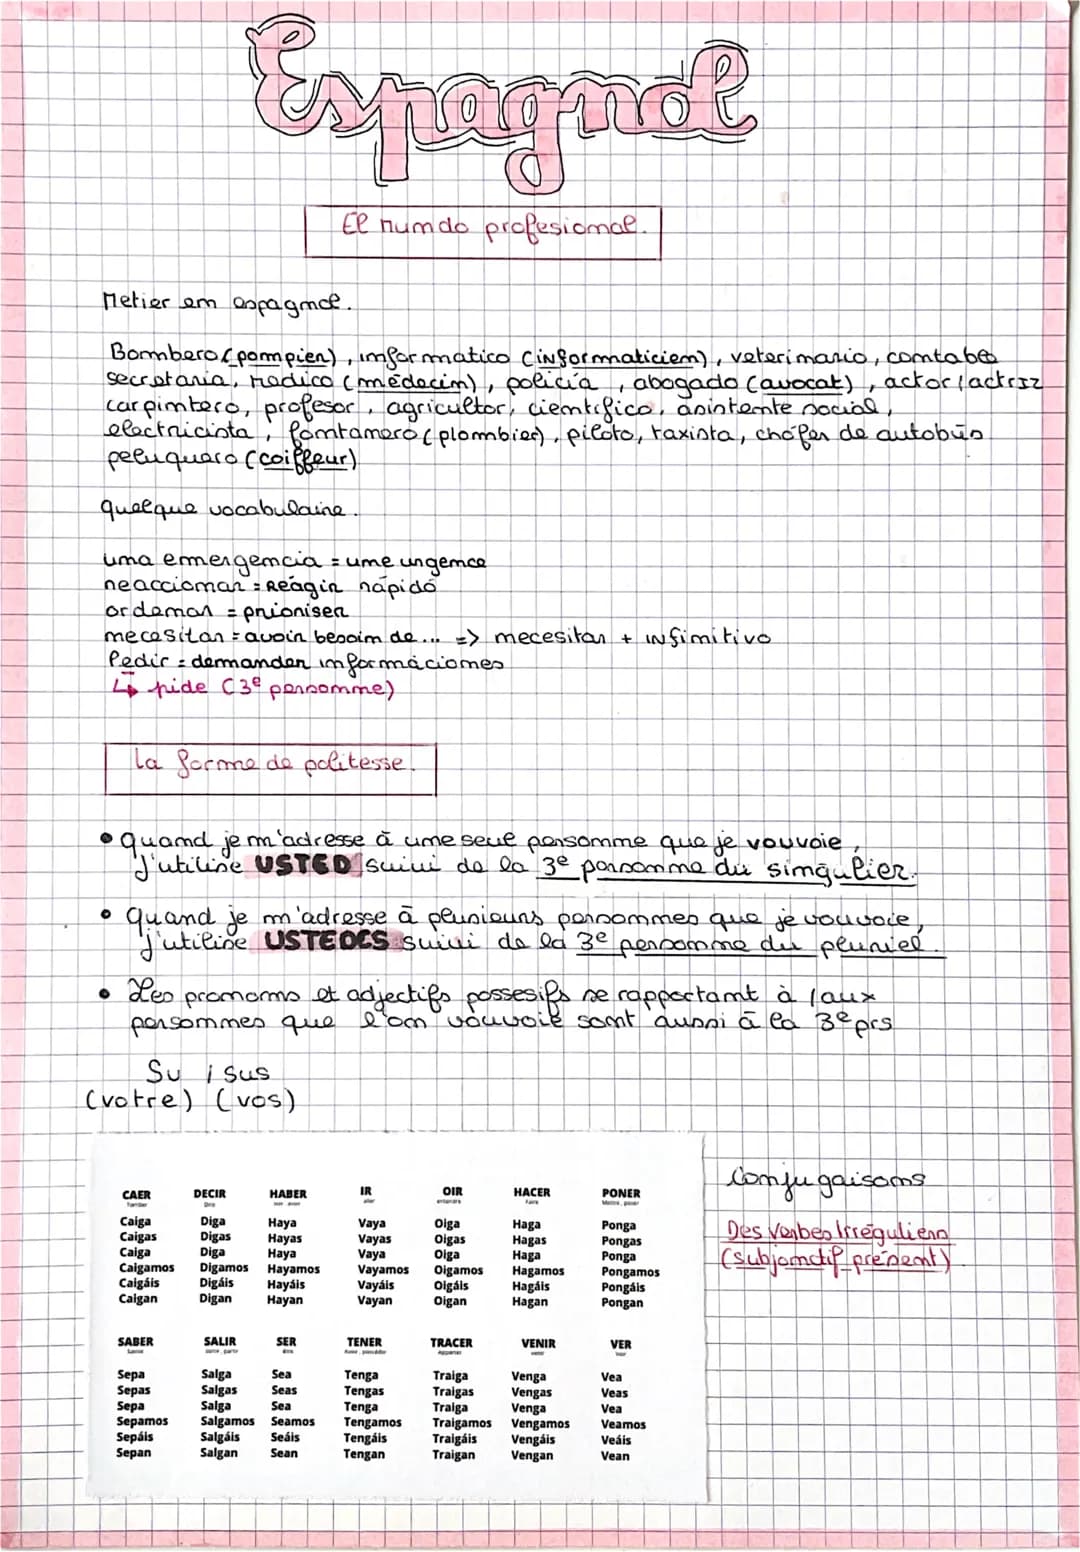 Espagnol
El mundo profesional.
Metier en espagnol.
Bombero (pompier), informatico (informaticien), veterinario, comtable
secretaria, medico (médecin), policía, abogado (avocat), actor/actriz
carpintero, profesor, agricultor, cientifico, asistente social,
electricista, fontanero (plombier), piloto, taxista, chófer de autobús
peluquero (coiffeur)
quelque vocabulaire.
una emergencia = une urgence
reaccionar = Réagir rápido
ordenar = prioriser
necesitar = avoir besoin de ... => necesitar + infinitivo
Pedir = demander informáciones
↳ pide (3e personne)
La forme de politesse.
• quand je m'adresse à une seul personne que je vouvoie,
j'utilise USTED suivi de la 3e personne du singulier.
• quand je m'adresse à plusieurs personnes que je vouvoie,
j'utilise USTEDES suivi de la 3e personne du pluriel.
• Les pronoms et adjectifs possesifs se rapportant à / aux
personnes que l'on vouvoie sont aussi à la 3e prs
Su / sus
(votre) (vos)
Conjugaisons
Des verbes Irréguliers
(subjonctif présent)
CAER DECIR HABER IR OIR HACER PONER
Tomber Dire aller entendre Faire Mettre, poser
Caiga Diga Haya Vaya Oiga Haga Ponga
Caigas Digas Hayas Vayas Oigas Hagas Pongas
Caiga Diga Haya Vaya Oiga Haga Ponga
Caigamos Digamos Hayamos Vayamos Oigamos Hagamos Pongamos
Caigáis Digáis Hayáis Vayáis Oigáis Hagáis Pongáis
Caigan Digan Hayan Vayan Oigan Hagan Pongan
SABER SALIR SER TENER TRACER VENIR VER
Sepa Salga Sea Tenga Traiga Venga Vea
Sepas Salgas Seas Tengas Traigas Vengas Veas
Sepa Salga Sea Tenga Traiga Venga Vea
Sepamos Salgamos Seamos Tengamos Traigamos Vengamos Veamos
Sepáis Salgáis Seáis Tengáis Traigáis Vengáis Veáis
Sepan Salgan Sean Tengan Traigan Vengan Vean